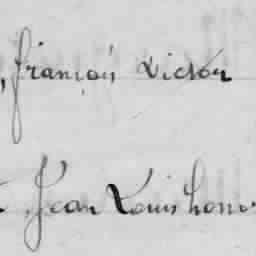 , françois Victor
Jean Louis hono